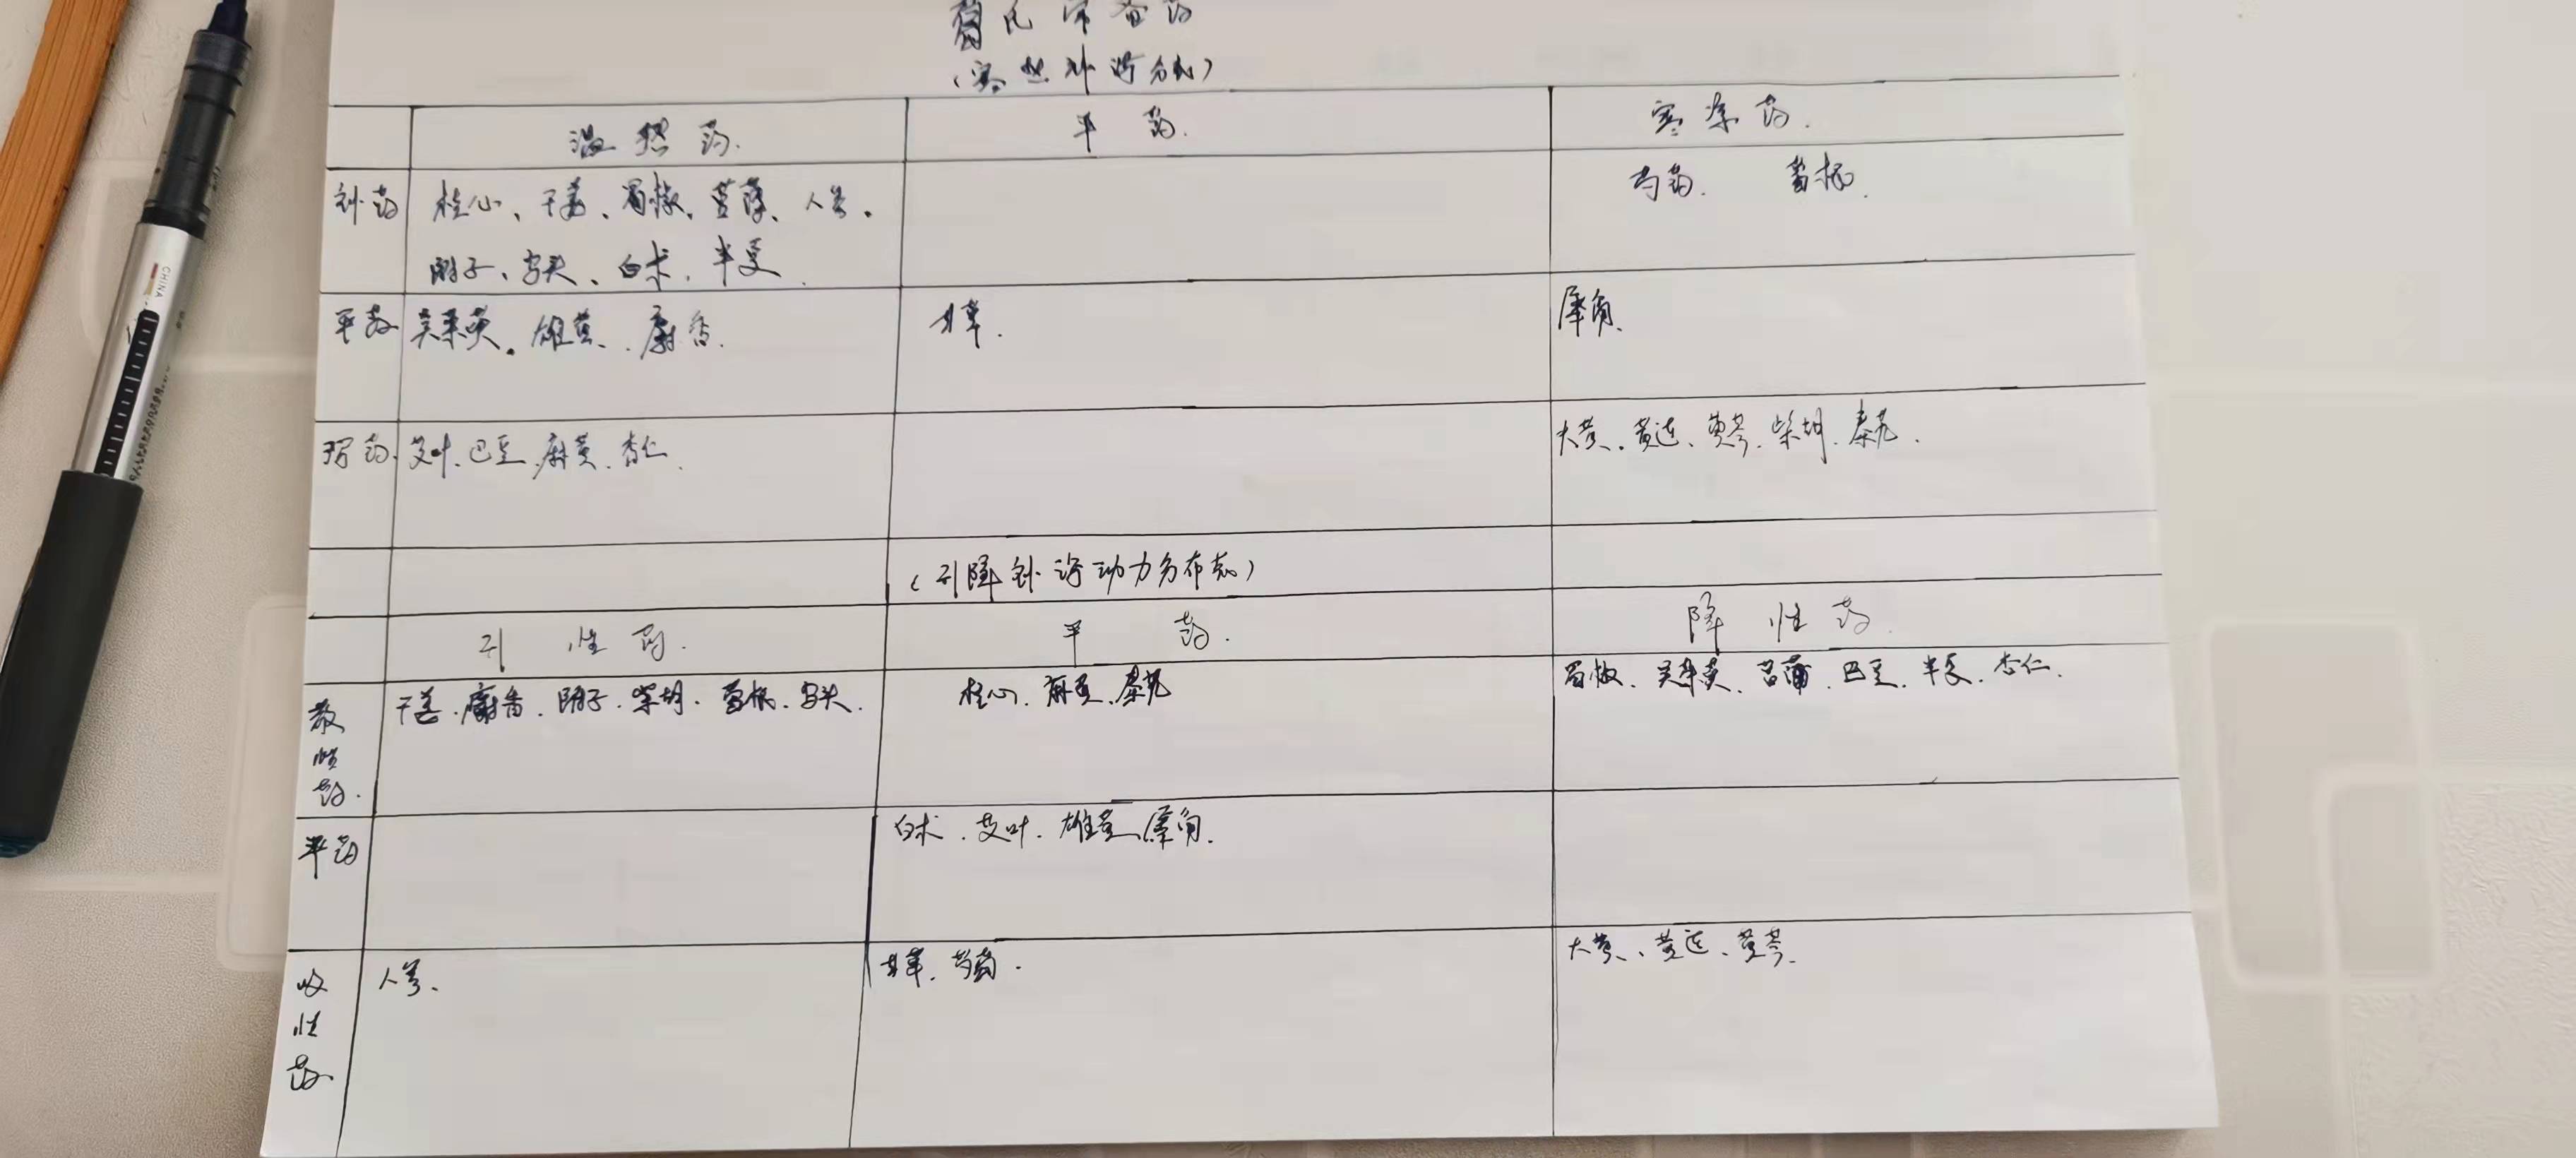 葛氏常备药
(寒热补泻分布)
温热药. 平药. 寒凉药.
补药 桂心、干姜、蜀椒、菖蒲、人参. 芍药. 葛根.
附子、乌头、白术. 半夏.
平药 吴茱萸. 雄黄、. 麝香. 甘草. 犀角.
泻药. 艾叶. 巴豆. 麻黄. 杏仁. 大黄、黄连、黄芩. 柴胡. 秦艽.
(升降补泻动力分布表)
升性药. 平药. 降性药.
散性药. 干姜. 麝香. 附子. 柴胡. 葛根. 乌头. 桂心. 麻黄. 秦艽 蜀椒. 吴茱萸. 菖蒲. 巴豆. 半夏. 杏仁.
平药 白术. 艾叶. 雄黄、犀角.
收性药 人参、 甘草. 芍药. 大黄、黄连、黄芩.
CHINA